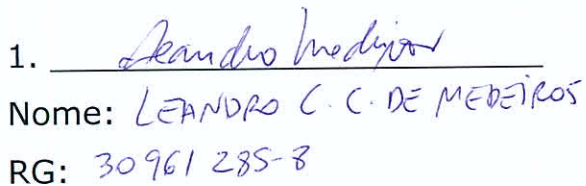 1. Leandro Medeiros
Nome: LEANDRO C. C. DE MEDEIROS
RG: 30961285-8